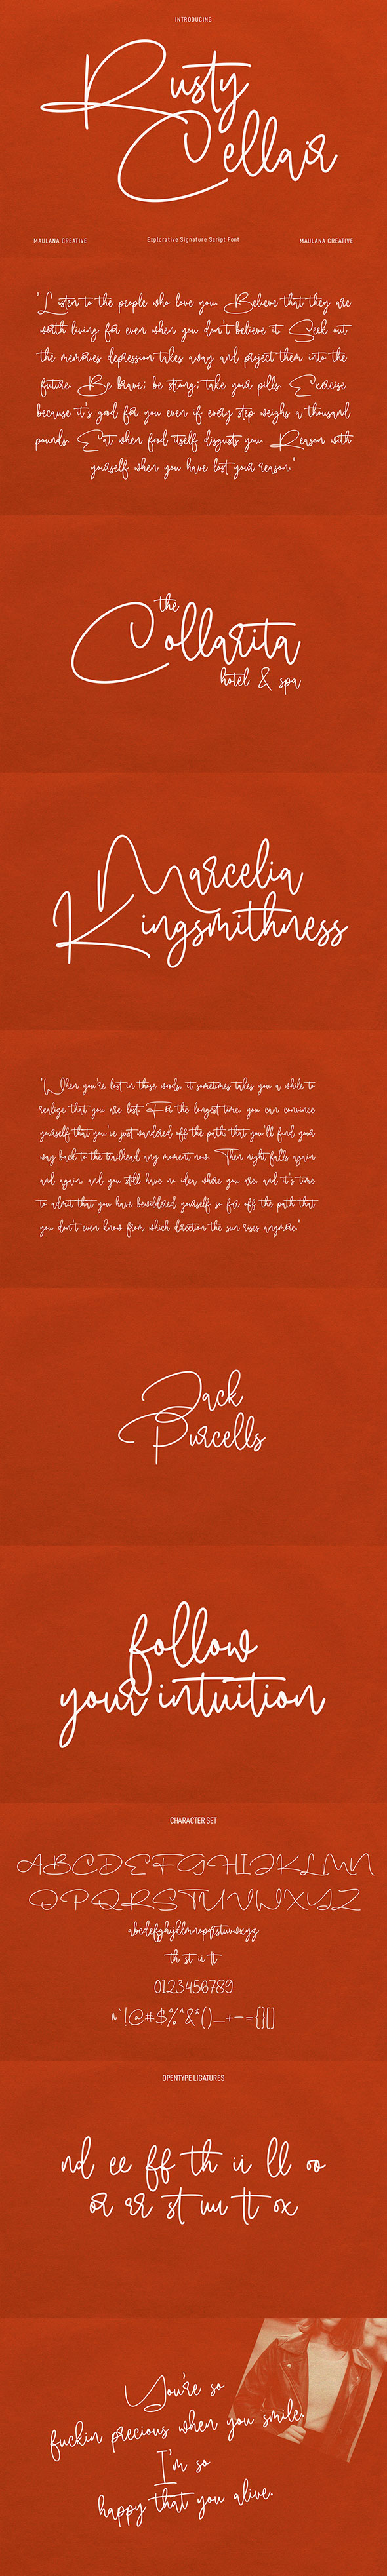 INTRODUCING
Rusty
Cellair
MAULANA CREATIVE
Explorative Signature Script Font
MAULANA CREATIVE
"Listen to the people who love you. Believe that they are
worth living for even when you don't believe it. Seek out
the memories depression takes away and project them into the
future. Be brave; be strong; take your pills. Exercise
because it's good for you even if every step weighs a thousand
pounds. Eat when food itself disgusts you. Reason with
yourself when you have lost your reason."
the
Collarita
hotel & spa
Marcelia
Kingsmithness
"When you're lost in those woods, it sometimes takes you a while to
realize that you are lost. For the longest time, you can convince
yourself that you've just wandered off the path, that you'll find your
way back to the trailhead any moment now. Then night falls again
and again, and you still have no idea where you are, and it's time
to admit that you have bewildered yourself so far off the path that
you don't even know from which direction the sun rises anymore."
Jack
Purcells
follow
your intuition
CHARACTER SET
ABCDEFGHIJKLMN
OPQRSTUVWXYZ
abcdefghijklmnopqrstuvwxyz
th st ii tt
0123456789
~`!@#$%^&*()_+-={}[]
OPENTYPE LIGATURES
nd ee ff th ii ll oo
or rr st uu tt ox
You're so
fuckin precious when you smile.
I'm so
happy that you alive.